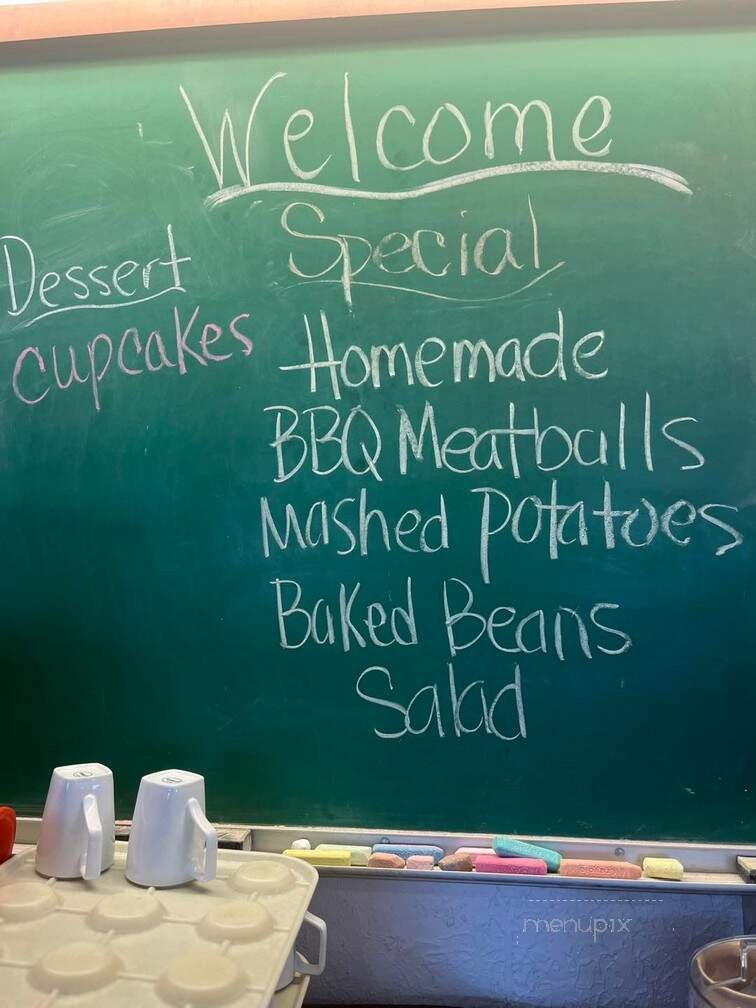 Welcome
Special
Dessert
cupcakes
Homemade
BBQ Meatballs
Mashed Potatoes
Baked Beans
Salad
menupix